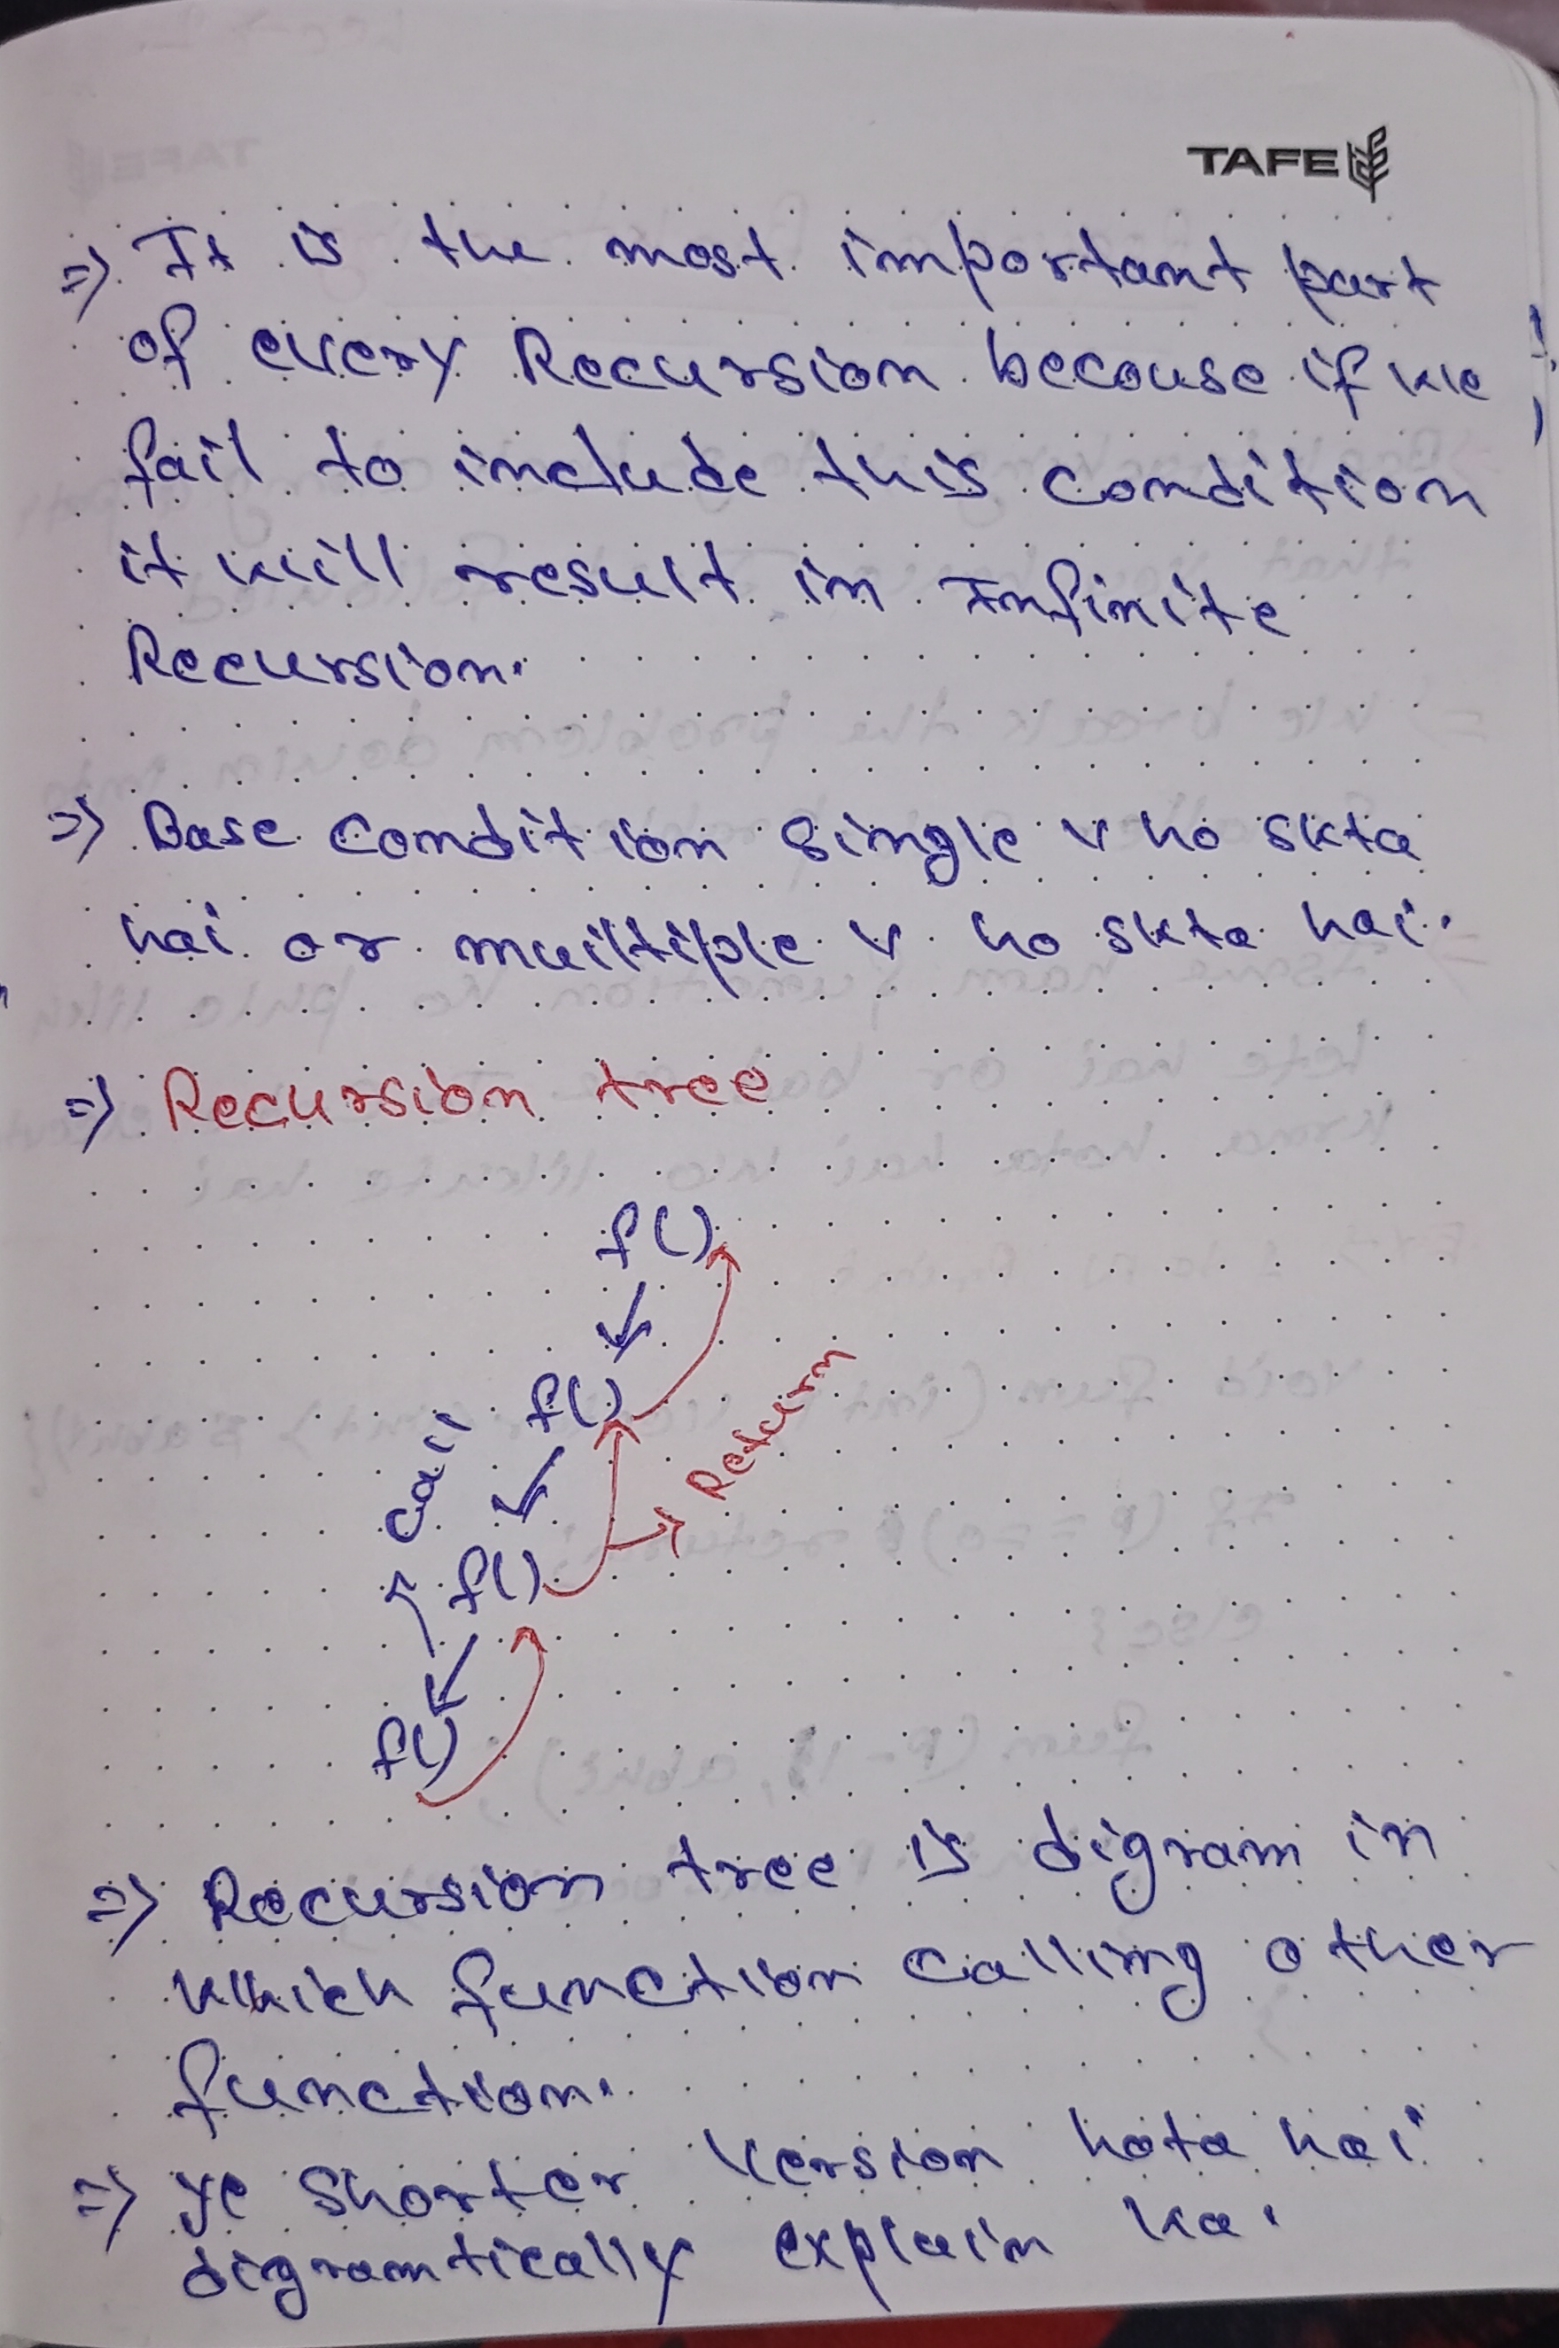 TAFE
=> It is the most important part
of every Recursion becouse if we
fail to include this condition
it will result in Infinite
Recursion.
=> Base condition single v ho skta
hai or muiltiple v ho skta hai.
=> Recursion tree
f()
f()
call
Return
f()
f()
=> Recursion tree is digram in
which function calling other
function.
=> ye shorter version hota hai
digramtically explain ka.